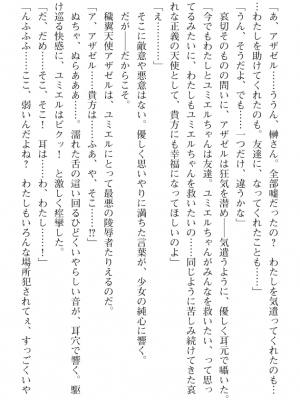 「あ、アザゼル……ううん、榊さん。全部嘘だったの？　わたしを気遣ってくれたのも…
…わたしを助けてくれたのも。友達に、なってくれたことも……」
「うん、そうだよ、でも……一つだけ、違うかな」
哀切そのものの問いに、アザゼルは狂気を潜め――気遣うように、優しく耳元で囁いた。
「今でもわたしとユミエルちゃんは友達。ユミエルちゃんがみんなを救いたい、って思っ
てるみたいに、わたしもユミエルちゃんを救いたいの……同じように苦しみ続けてきた哀
れな正義の天使として、貴方にも幸福になってほしいのよ」
そこに敵意や悪意はない。優しく思いやりに満ちた言葉が、少女の純心に響く。
だが――だからこそ。
穢翼天使アザゼルは、ユミエルにとって最悪の陵辱者たりえるのだ。
「ア、アザゼル……貴方は……ふぁ、や、そこ……!?」
ぬちゃ、ぬらあああ……。濡れた舌の這い回るひどくいやらしい音が、耳穴で響く。駆
け巡る快感に、ユミエルはビクッ！　と激しく痙攣した。
「だ、だめ……そこ、そこ！　耳は……わ、わたし……！」
「んふふふ……ここ、弱いんだよね？　わたしもいろんな場所犯されてぇ、すっごくいや